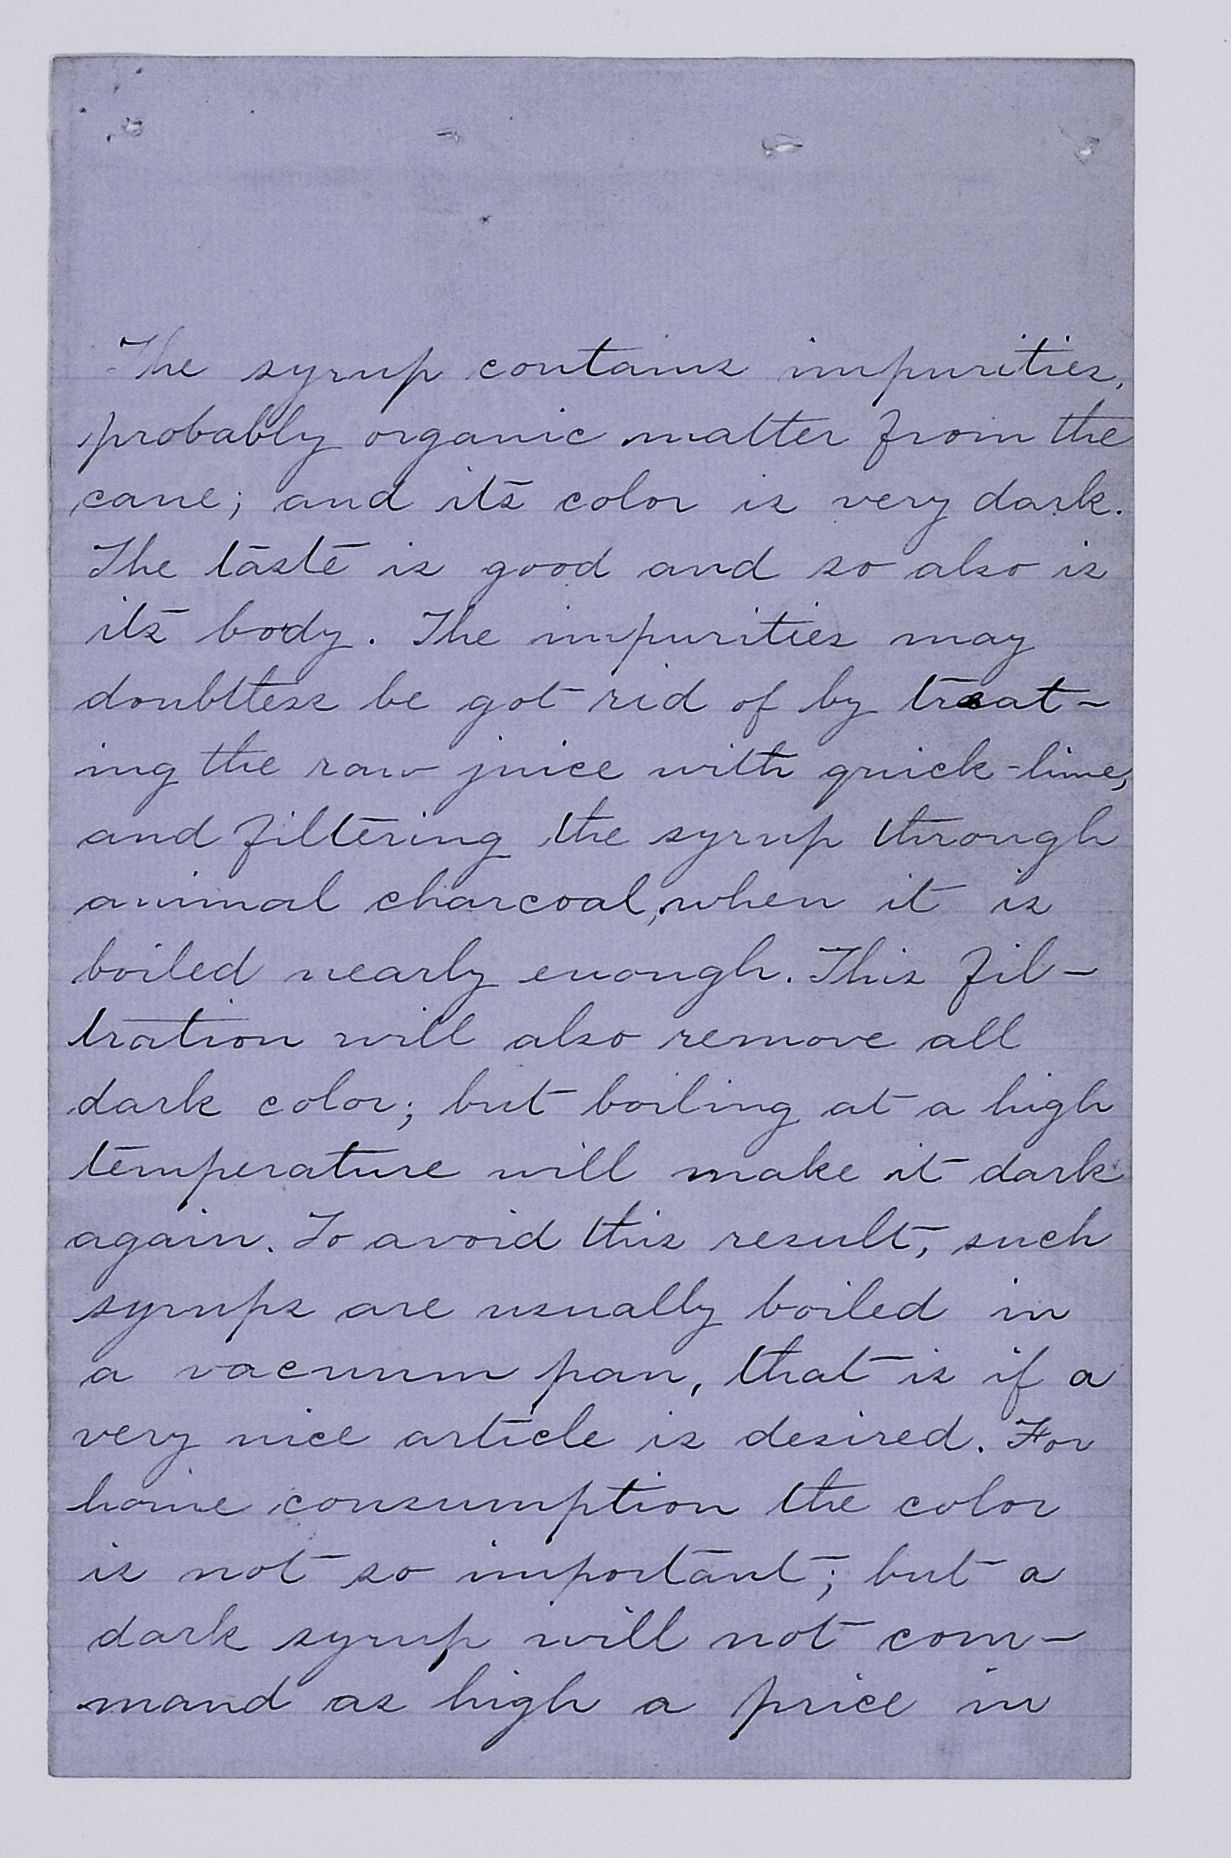 The syrup contains impurities,
probably organic matter from the
cane; and its color is very dark.
The taste is good and so also is
its body. The impurities may
doubttess be got rid of by treat-
ing the raw juice with quick-lime,
and filtering the syrup through
animal charcoal, when it is
boiled nearly enough. This fil-
tration will also remove all
dark color; but boiling at a high
temperature will make it dark
again. To avoid this result, such
syrups are usually boiled in
a vacuum pan, that is if a
very nice article is desired. For
home consumption the color
is not so important; but a
dark syrup will not com-
mand as high a price in